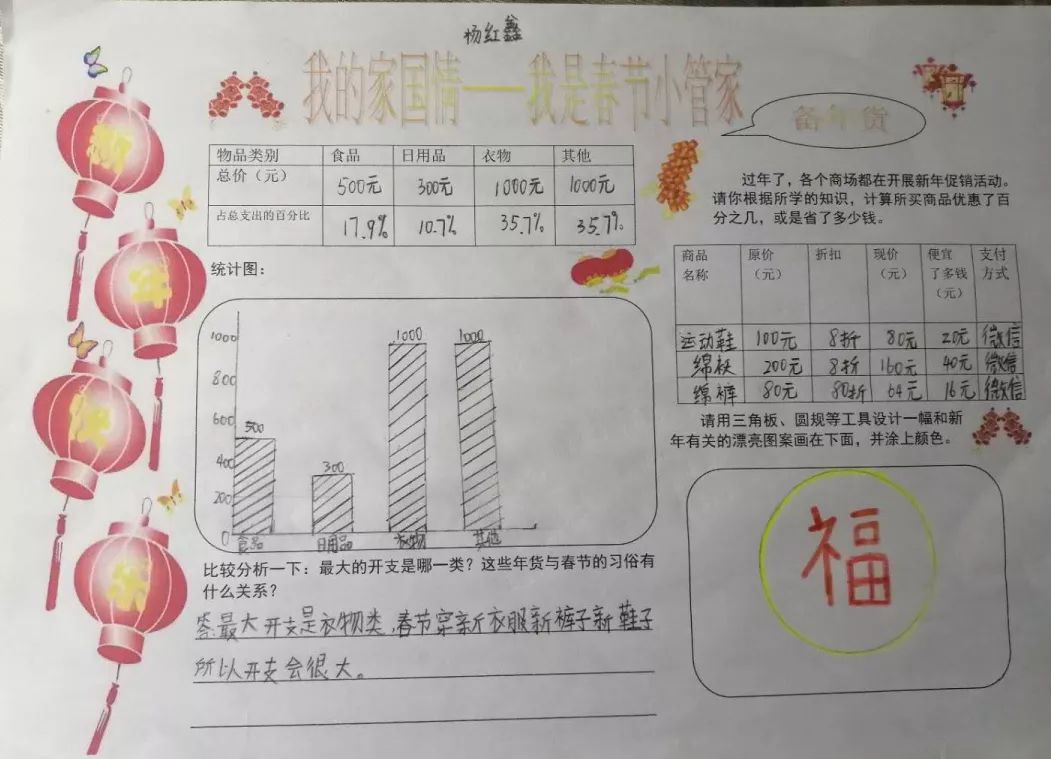 杨红鑫
我的家国情——我是春节小管家
备年货
新年快乐
物品类别 食品 日用品 衣物 其他
总价（元） 500元 300元 1000元 1000元
占总支出的百分比 17.9% 10.7% 35.7% 35.7%
统计图：
1000
800
600
400
200
0
500 300 1000 1000
食品 日用品 衣物 其他
比较分析一下：最大的开支是哪一类？这些年货与春节的习俗有
什么关系？
答:最大开支是衣物类,春节穿新衣服新裤子新鞋子
所以开支会很大。
过年了，各个商场都在开展新年促销活动。
请你根据所学的知识，计算所买商品优惠了百
分之几，或是省了多少钱。
商品 原价 折扣 现价 便宜 支付
名称 （元） （元） 了多钱 方式
（元）
运动鞋 100元 8折 80元 20元 微信
绵袄 200元 8折 160元 40元 微信
绵裤 80元 80折 64元 16元 微信
请用三角板、圆规等工具设计一幅和新
年有关的漂亮图案画在下面，并涂上颜色。
福